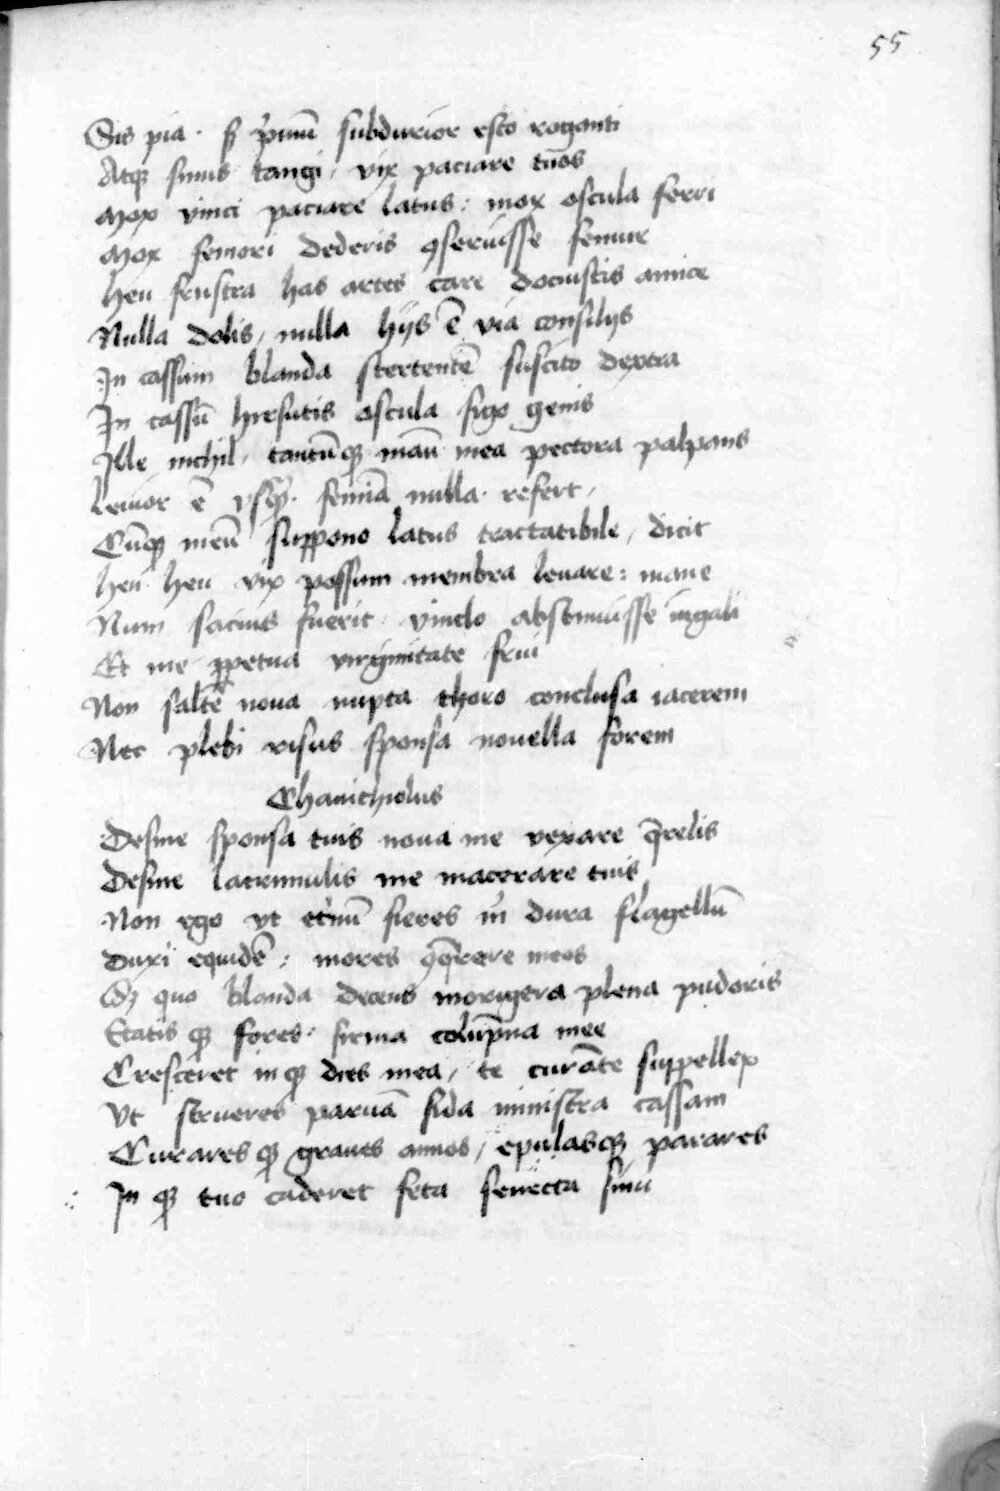 55
Sis pia · sꝫ pͥmū subdurior esto roganti
Atqꝫ sinus tangi, vix paciare tuos
Mox vinci paciare latus : mox oscula ferri
Mox femori dederis ꝯseruisse femur
Heu frustra has artes care docuistis amice
Nulla dolis, nulla hijs ē via consilijs
In cassum blanda stertentē suscito dextra
In cassū hirsutis oscula figo genis
Ille nichil, tantūqꝫ manū mea pectora palpans
Leuior ē vsqꝫ · femīa nulla · refert,
Cūqꝫ meū suppono latus tractatibile, dicit
heu heu vix possum membra leuare : mane
Num sacius fuerit vinclo abstinuisse iugali
Et me ꝑpetua virginitate frui
Non saltē noua nupta thoro conclusa iacerem
Nec plebi risus sponsa nouella forem
Chanichiolus
Desine sponsa tuis noua me vexare q̄relis
Desine lacrimulis me macerare tuis
Non ego vt etͥnū fieres m̄ dura flagellū
Duxi equidē : mores ꝯq̄rere meos
Sꝫ quo blanda decens morigera plena pudoris
Etatis qꝫ fores · firma colūpna mee
Cresceret in qꝫ dies mea, te curāte suppellex
Vt strueres paruā fida ministra cassam
Curares qꝫ graues annos, epulasqꝫ parares
In qꝫ tuo caderet feta senecta sinu